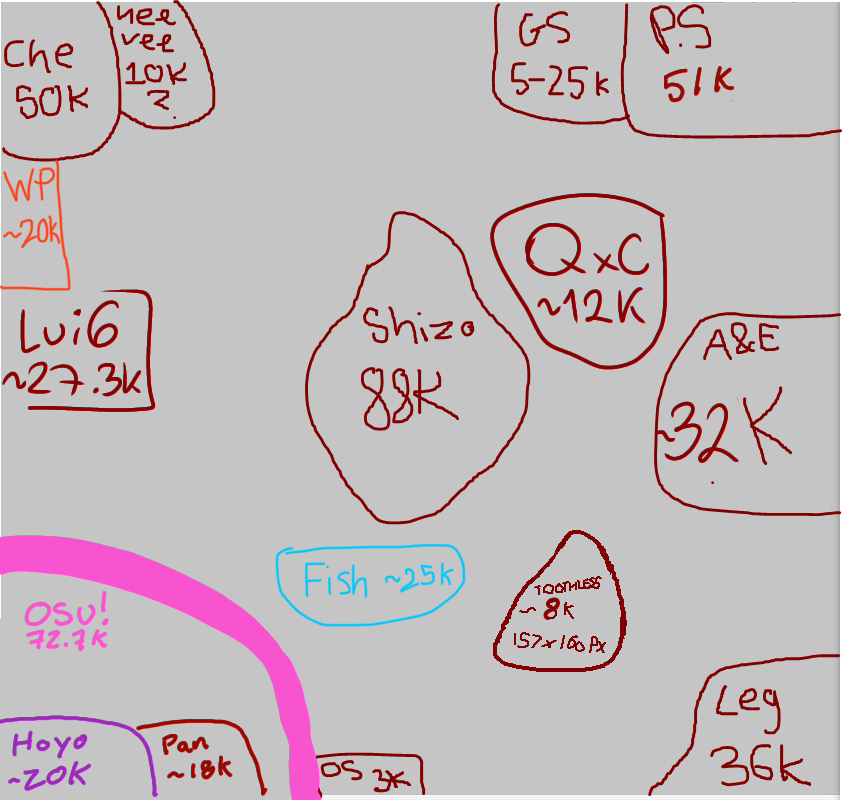 Che
50K
nee
vee
10K
?
GS
5-25k
P.S
51K
WP
~20k
QxC
~12K
Lui6
~27.3k
Shizo
88K
A&E
~32K
Fish ~25k
TOOTHLESS
~8K
157x160Px
OSU!
72.7K
Leg
36k
Hoyo
~20K
Pan
~18k
OS 3K